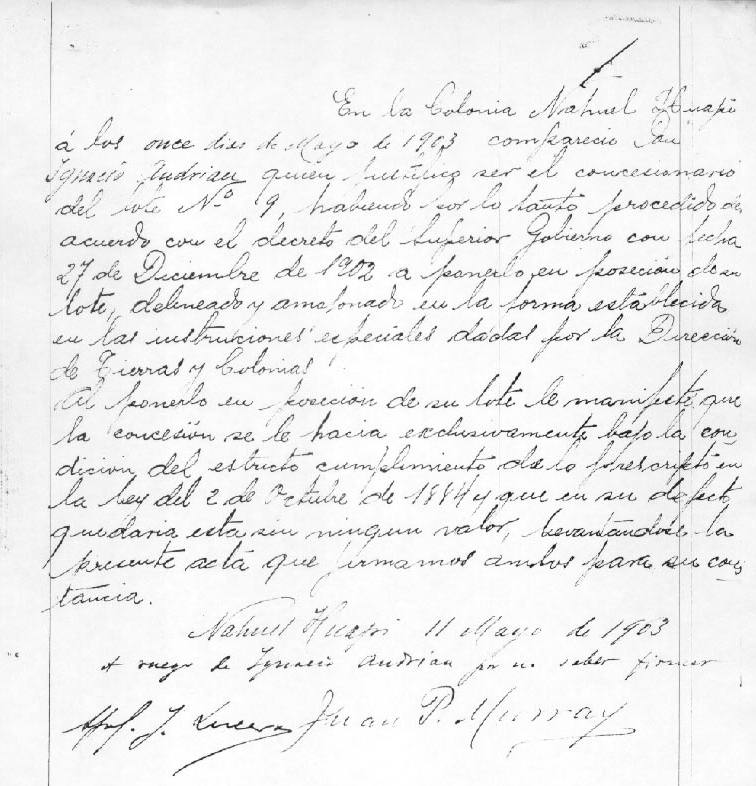 En la Colonia Nahuel Huapi
á los once dias de Mayo de 1903 comparecio Don
Ignacio Andrian quien justifico ser el concesionario
del lote Nº 9, habiendo por lo tanto procedido de
acuerdo con el decreto del Superior Gobierno con fecha
27 de Diciembre de 1902 a ponerlo en poseción de su
lote, delineado y amojonado en la forma establecida
en las instruciones especiales dadas por la Dirección
de Tierras y Colonias
Al ponerlo en poseción de su lote le manifesté que
la concesión se le hacia exclusivamente bajo la con
dicion del estricto cumplimiento de lo prescripto en
la ley del 2 de Octubre de 1884 y que en su defecto
quedaria esta sin ningun valor, levantándose la
presente acta que firmamos ambos para su cons
tancia.
Nahuel Huapi 11 Mayo de 1903
A ruego de Ignacio Andrian por no saber firmar
J. Lucero Juan P. Murray